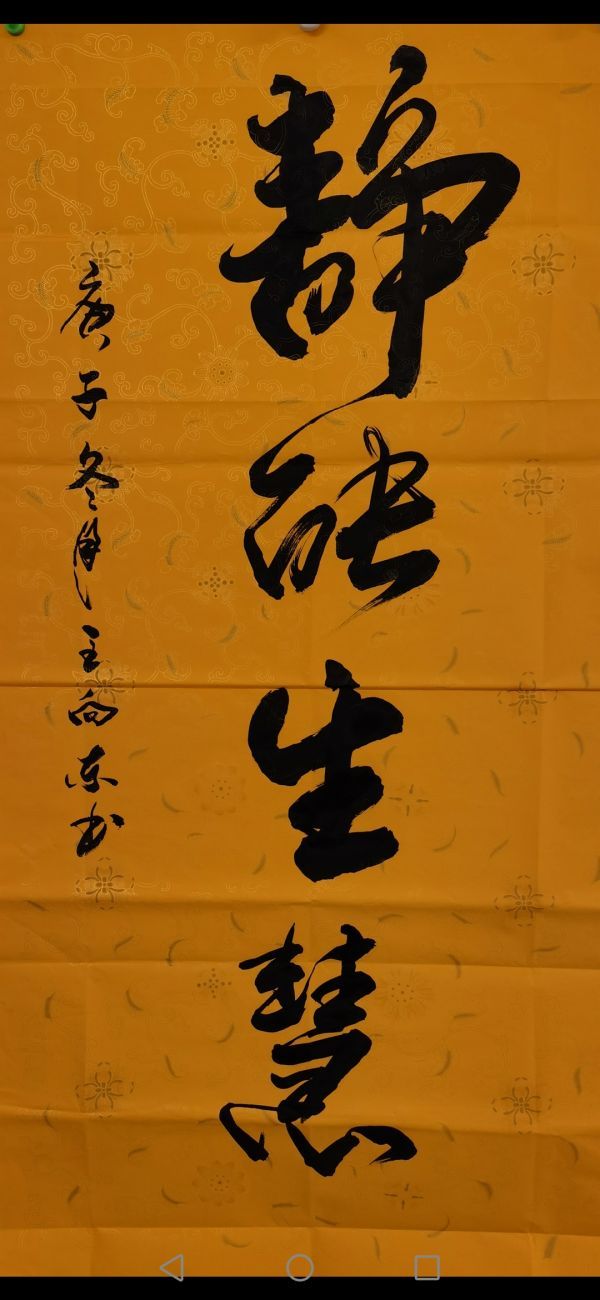 静能生慧
庚子冬月王向东书